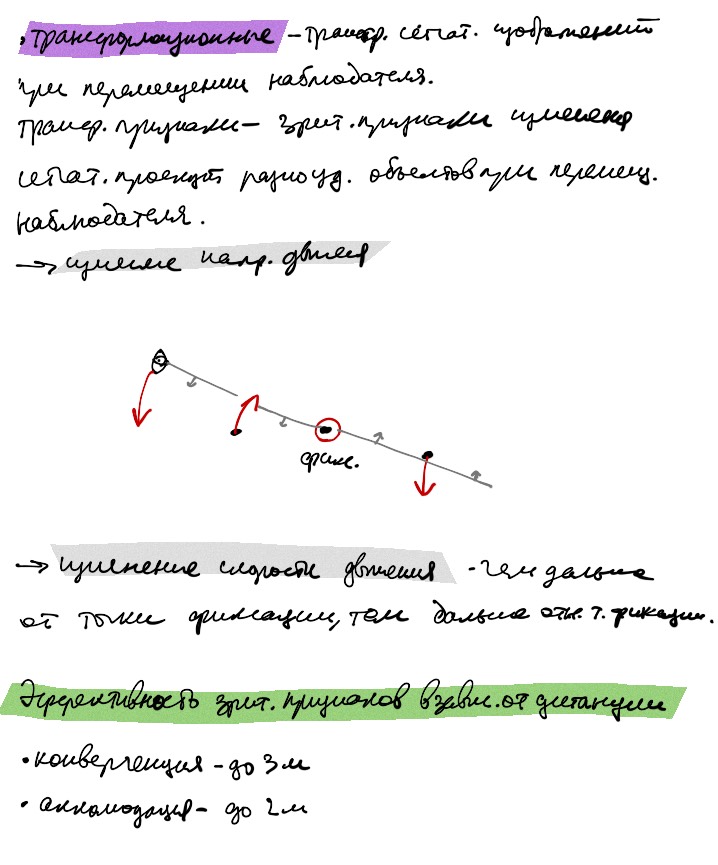 • трансформационные – трансф. сетчат. изображений
при перемещении наблюдателя.
трансф. признаки – зрит. признаки изменения
сетчат. проекций разноуд. объектов при перемещ.
наблюдателя.
→ измение напр. движея
фикс.
→ изменение скорости движения - чем дальше
от точки фиксации, тем дальше отн. т. фиксации.
Эффективность зрит. признаков в завис. от дистанции
• конвергенция – до 3 м
• аккомодация – до 2 м